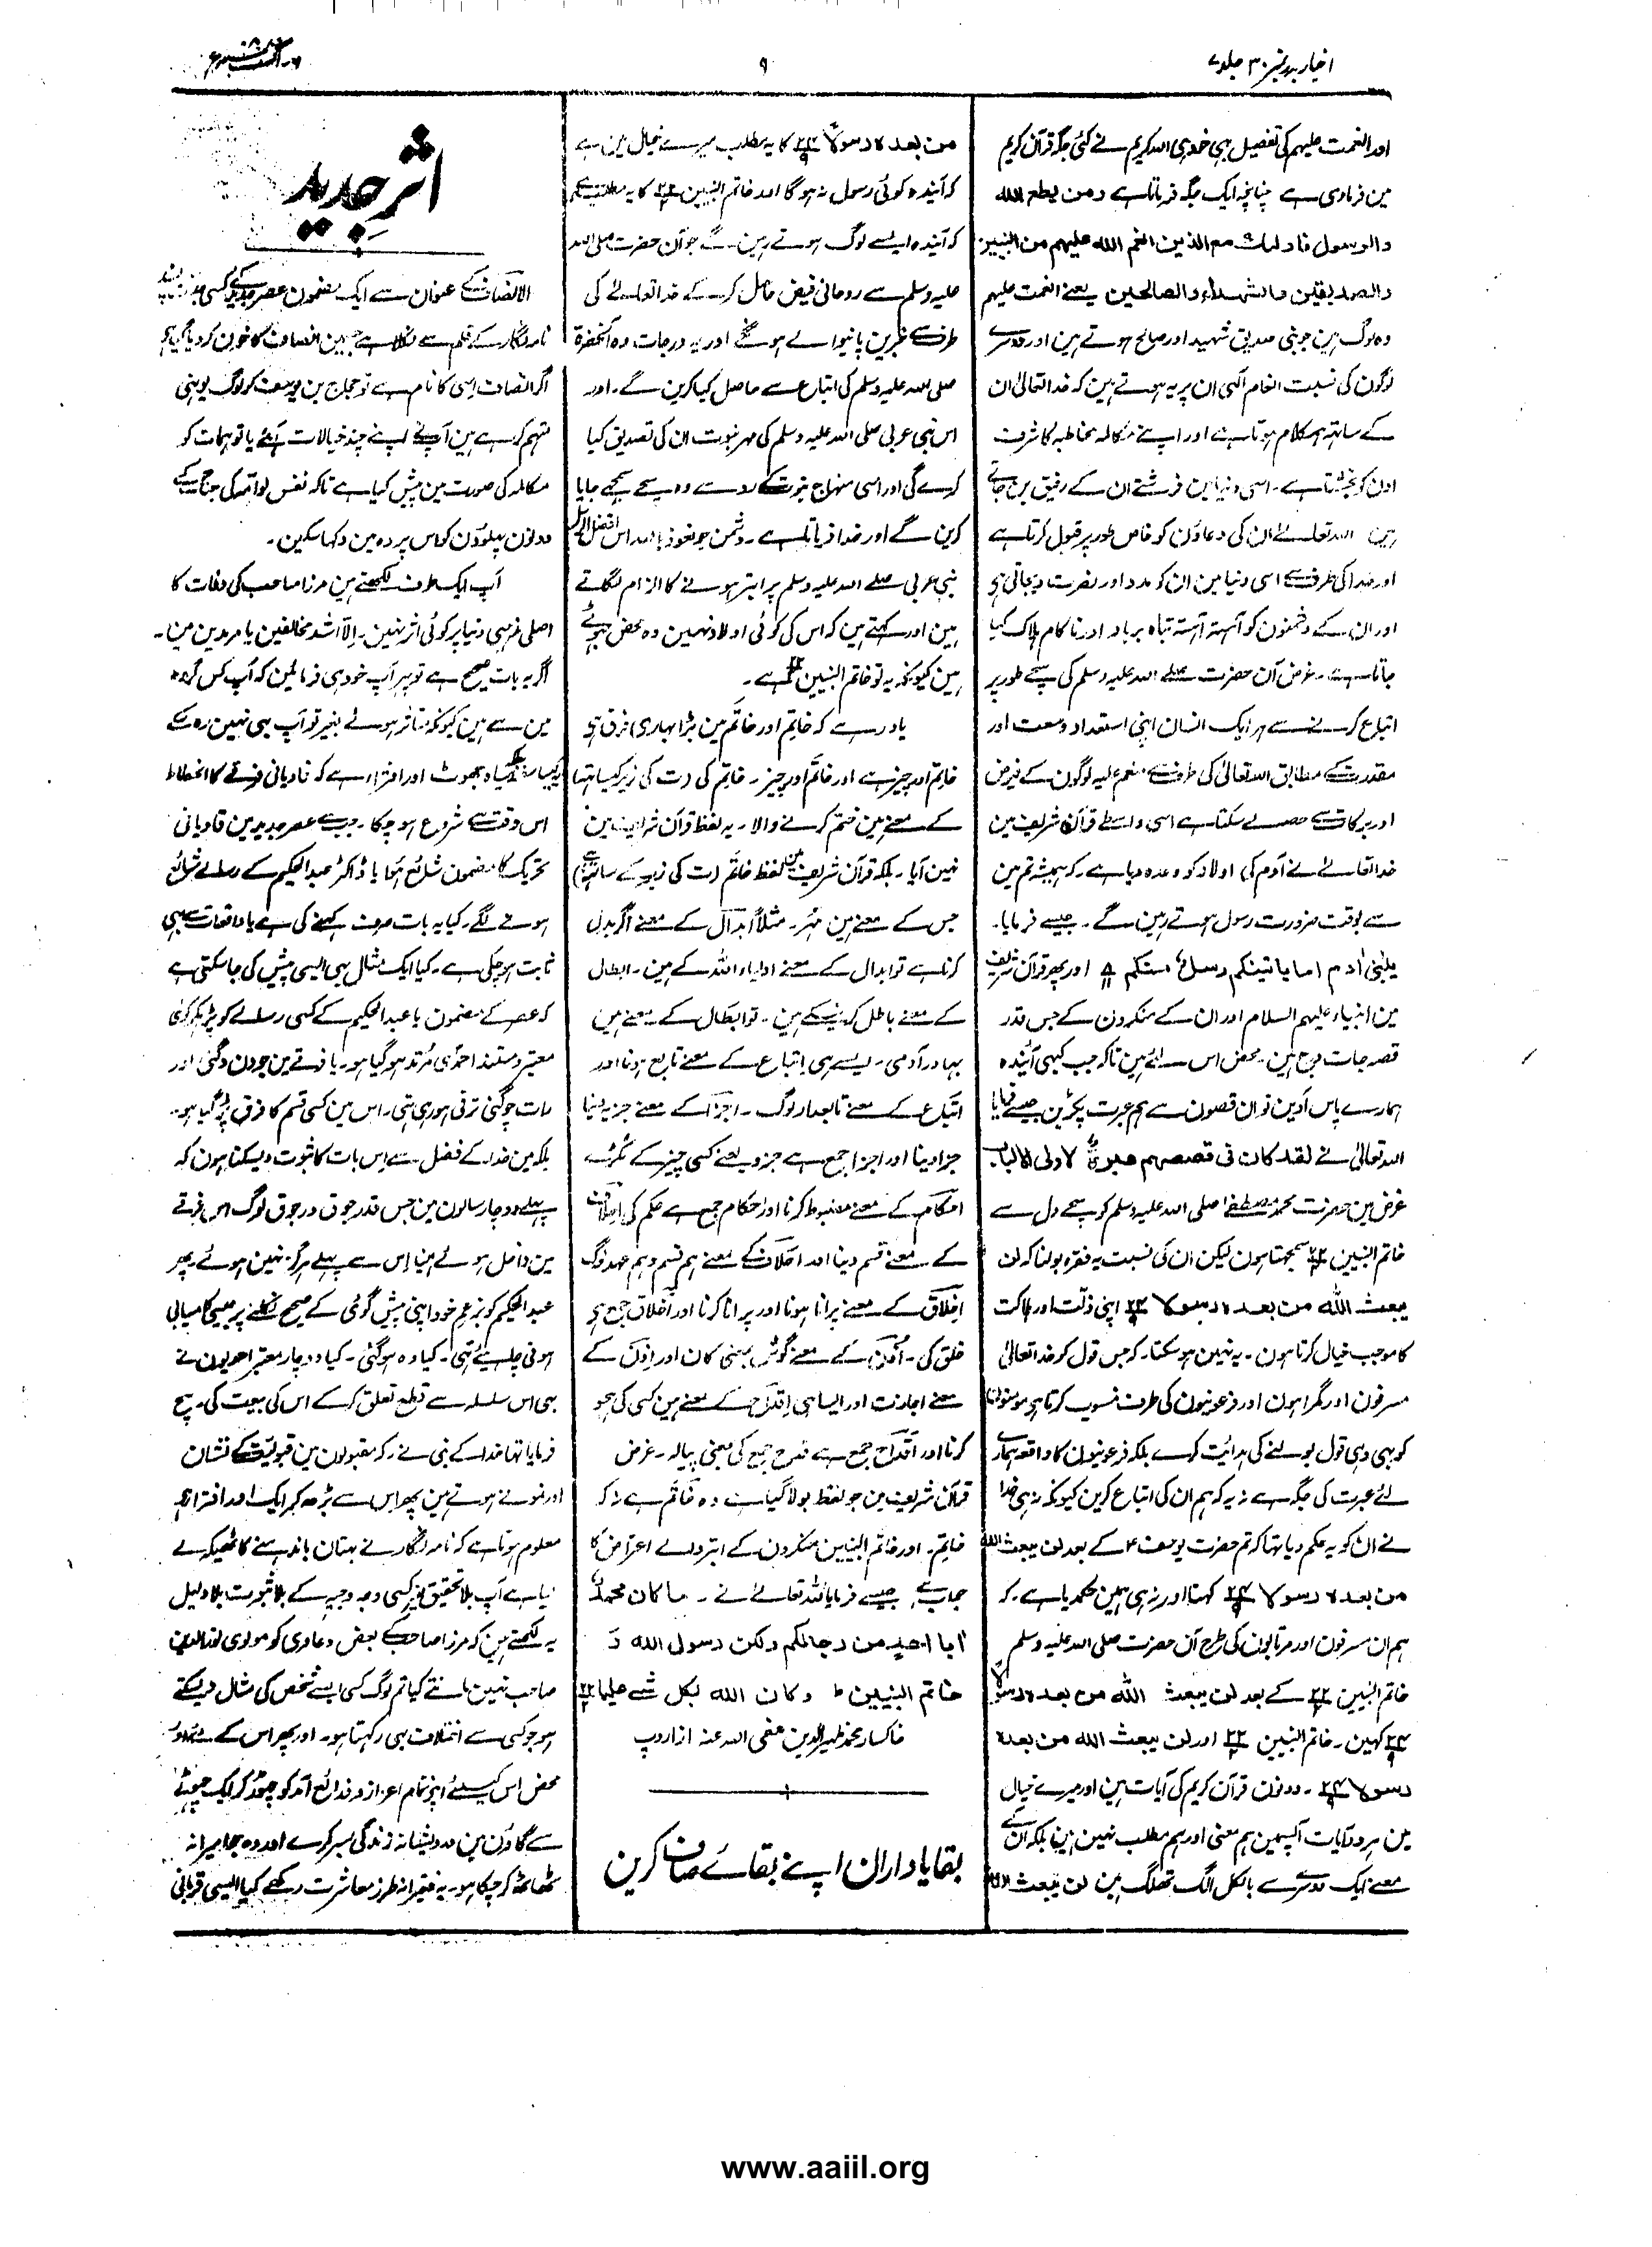 اخبار بدر نمبر ۳۰ جلد ۷
۹
اور انعمت علیہم کی تفصیل بہی خود ہی اللہ کریم نے کئی جگہ قرآن کریم
مین فرمادی ہے چنانچہ ایک جگہ فرماتا ہے ومن یطع اللہ
والرسول فاولئک مع الذین انعم اللہ علیہم من النبیین
والصدیقین والشہداء والصالحین یعنے انعمت علیہم
وہ لوگ ہین جو نبی صدیق شہید اور صالح ہوتے ہین اور دوسرے
لوگون کی نسبت انعام الٰہی ان پر یہ ہوتے ہین کہ خدا تعالیٰ ان
کے ساتہہ ہمکلام ہوتا ہے اور اپنے مکالمہ مخاطبہ کا شرف
اون کو بخشتا ہے۔ اسی دنیا مین فرشتے ان کے رفیق بن جاتے
ہین اللہ تعالےٰ ان کی دعاؤن کو خاص طور پر قبول کرتا ہے
اور خدا کی طرف سے اسی دنیا مین ان کو مدد اور نصرت دیجاتی ہے
اور ان کے دشمنون کو آہستہ آہستہ تباہ برباد اور ناکام ہلاک کیا
جاتا ہے۔ غرض آن حضرت صلے اللہ علیہ وسلم کی سچے طور پر
اتباع کرنے سے ہر ایک انسان اپنی استعداد وسعت اور
مقدرت کے مطابق اللہ تعالیٰ کی طرف سے منعم علیہ لوگون کے فیوض
اور برکات سے حصہ لے سکتا ہے اسی واسطے قرآن شریف مین
خدا تعالےٰ نے آدم کی اولاد کو وعدہ دیا ہے۔ کہ ہمیشہ تم مین
سے بوقت ضرورت رسول ہوتے رہین گے۔ جیسے فرمایا۔
یٰبنی اٰدم اما یاتینکم رسل منکم ۸ اور پھر قرآن شریف
مین انبیاء علیہم السلام اور ان کے منکرون کے جس قدر
قصہ جات درج ہین۔ محض اس لئے ہین تاکہ جب کبہی آئندہ
ہمارے پاس آدین تو ان قصون سے ہم عبرت پکڑین جیسے فرمایا
اللہ تعالیٰ نے لقد کان فی قصصہم عبرۃ لاولی الالباب
غرض مین حضرت محمد مصطفےٰ صلی اللہ علیہ وسلم کو سچے دل سے
خاتم النبیین سمجہتا ہون لیکن ان کی نسبت یہ فقرہ بولنا کہ لن
یبعث اللہ من بعدہ رسولا اپنی ذلت اور ہلاکت
کا موجب خیال کرتا ہون۔ یہ نہین ہو سکتا۔ کہ جس قول کو خدا تعالیٰ
مسرفون اور گمراہون اور فرعونیون کی طرف منسوب کرتا ہو مومنون
کو بہی وہی قول بولنے کی ہدایت کرے بلکہ فرعونیون کا واقعہ ہمارے
لئے عبرت کی جگہ ہے نہ یہ کہ ہم ان کی اتباع کرین کیونکہ نہ ہی خدا
نے ان کو یہ حکم دیا تہا کہ تم حضرت یوسف ؑ کے بعد لن یبعث اللہ
من بعدہ رسولا کہنا اور نہ ہی ہمین حکم دیا ہے۔ کہ
ہم ان مسرفون اور مرتابون کی طرح آن حضرت صلی اللہ علیہ وسلم
خاتم النبیین کے بعد لن یبعث اللہ من بعدہ رسولا
کہین۔ خاتم النبیین اور لن یبعث اللہ من بعدہ
رسولا۔ دونون قرآن کریم کی آیات ہین اور میرے خیال
مین ہر دو آیات آپسمین ہم معنی اور ہم مطلب نہین ہین بلکہ ان کے
معنے ایک دوسرے سے بالکل الگ تھلگ ہین لن یبعث اللہ
من بعدہ رسولا کا یہ مطلب میرے خیال مین ہے
کہ آیندہ کوئی رسول نہ ہوگا اور خاتم النبیین کا یہ مطلب ہے
کہ آیندہ ایسے لوگ ہوتے رہین گے جو آن حضرت صلی اللہ
علیہ وسلم سے روحانی فیض حاصل کرکے خدا تعالےٰ کی
طرف سے خبرین پانیوالے ہونگے اور یہ درجات وہ آنحضرۃ
صلی اللہ علیہ وسلم کی اتباع سے حاصل کیا کرین گے۔ اور
اس نبی عربی صلی اللہ علیہ وسلم کی مہر نبوت ان کی تصدیق کیا
کرے گی اور اسی منہاج نبوت کے رو سے وہ سچے سمجھے جایا
کرین گے اور خدا فرماتا ہے۔ دشمن جو نعوذ باللہ اس افضل الرسل
نبی عربی صلے اللہ علیہ وسلم پر ابتر ہونے کا الزام لگاتے
ہین اور کہتے ہین کہ اس کی کوئی اولاد نہین وہ محض جہوٹے
ہین کیونکہ یہ تو خاتم النبیین ہے۔
یاد رہے کہ خاتِم اور خاتَم مین بڑا بہاری فرق ہے
خاتِم اور چیز ہے اور خاتَم اور چیز۔ خاتِم کی (ت کی زیر کیساتہ)
کے معنے ہین ختم کرنے والا۔ یہ لفظ قرآن شریف مین
نہین آیا۔ بلکہ قرآن شریف مین لفظ خاتَم (ت کی زبر کے ساتہ) ہے
جس کے معنے ہین مُہر۔ مثلاً اَبدال کے معنے اگر بدل
کرنا ہے تو ابدال کے معنے اولیاء اللہ کے ہین۔ ابطال
کے معنے باطل کرنیکے ہین۔ تو ابطال کے معنے ہین
بہادر آدمی۔ ایسے ہی اِتباع کے معنے تابع ہونا اور
اَتباع کے معنے تابعدار لوگ۔ اجزا کے معنے جزیہ لینا
جزا دینا اور اجزا جمع ہے جزو یعنے کسی چیز کے ٹکڑے
احکام کے معنے مضبوط کرنا اور احکام جمع ہے حکم کی احلاف
کے معنے قسم دینا اور احلاف کے معنے ہم قسم و ہم عہد لوگ
اِخلاق کے معنے پرانا ہونا اور پرانا کرنا اور اَخلاق جمع ہے
خلق کی۔ اُذُن کے معنے گوش بمعنی کان اور اِذن کے
معنے اجازت اور ایسا ہی اِقداح کے معنے ہین کسی کی ہجو
کرنا اور اَقداح جمع ہے قدح جمع کی معنی پیالہ۔ غرض
قرآن شریف مین جو لفظ بولا گیا ہے وہ خاتَم ہے نہ کہ
خاتِم۔ اور خاتَم النبیین منکرون کے ابتر والے اعتراض کا
جواب ہے جیسے فرمایا اللہ تعالےٰ نے۔ ما کان محمد
ابا احد من رجالکم ولکن رسول اللہ و
خاتم النبیین ط وکان اللہ بکل شے علیما
خاکسار محمد ظہیر الدین عفی اللہ عنہ از اروپ
بقایا داران اپنے بقائے صاف کرین
اثر جدید
الانصاف کے عنوان سے ایک مضمون عصر جدید کے کسی
نامہ نگار کے قلم سے نکلا ہے جسمین انصاف کا خون کر دیا گیا ہے
اگر انصاف اسی کا نام ہے تو حجاج بن یوسف کو لوگ یونہی
متہم کرتے ہین آپ نے اپنے چند خیالات یا توہمات کو
مکالمہ کی صورت مین پیش کیا ہے تاکہ نفس لوامہ کی جنگ کے
دونون پہلوؤن کو اس پردہ مین دکہا سکین۔
آپ ایک طرف لکھتے ہین مرزا صاحب کی وفات کا
اصلی مذہبی دنیا پر کوئی اثر نہین۔ اِلّا اشد مخالفین یا مریدین مین۔
اگر یہ بات صحیح ہے تو پہر آپ خود ہی فرمائین کہ آپ کس گروہ
مین سے ہین کیونکہ متاثر ہوئے بغیر تو آپ بہی نہین رہ سکے
یہ کیسا سیاہ جھوٹ اور افترا ہے کہ قادیانی فرقے کا انحطاط
اس وقت سے شروع ہو چکا۔ جب سے عصر جدید مین قادیانی
تحریک کا مضمون شائع ہوا یا ڈاکٹر عبد الحکیم کے رسالے شائع
ہونے لگے۔ کیا یہ بات صرف کہنے کی ہے یا واقعات سے بہی
ثابت ہو چکی ہے۔ کیا ایک مثال بہی ایسی پیش کی جا سکتی ہے
کہ عصر کے مضمون یا عبد الحکیم کے کسی رسالے کو پڑہکر کوئی
معتبر و مستند احمدی مرتد ہو گیا ہو۔ یا فرقے مین جو دن دگنی اور
رات چوگنی ترقی ہو رہی تہی۔ اس مین کسی قسم کا فرق پڑ گیا ہو۔
بلکہ مین خدا کے فضل سے اس بات کا ثبوت دے سکتا ہون کہ
پہلے دو چار سالون مین جس قدر جوق در جوق لوگ اس فرقے
مین داخل ہوئے ہین اس سے پہلے ہرگز نہین ہوئے پھر
عبد الحکیم کو بزعم خود اپنی پیش گوئی کے صحیح نکلنے پر جیسی کامیابی
ہونی چاہیئے تہی۔ کیا وہ ہو گئی۔ کیا دو چار معتبر احمدیون نے
بہی اس سلسلہ سے قطع تعلق کرکے اس کی بیعت کی۔ سچ
فرمایا تہا خدا کے نبی نے۔ کہ مقبولون مین قبولیت کے نشان
اور نمونے ہوتے ہین پھر اس سے بڑھ کر ایک اور افترا ہے
معلوم ہوتا ہے کہ نامہ نگار نے بہتان باندہنے کا ٹھیکہ لے
لیا ہے آپ بلا تحقیق بغیر کسی وجہ وجیہ کے بلا ثبوت بلا دلیل
یہ لکھتے ہین کہ مرزا صاحب کے بعض دعاوی کو مولوی نور الدین
صاحب نہین مانتے کیا تم لوگ کسی ایسے شخص کی مثال دے سکتے
ہو جو کسی سے اختلاف بہی رکہتا ہو۔ اور پھر اس کے
محض اس کے لیئے اپنے تمام اعزاز و ذرائع آمد کو چہوڑ کر ایک چھوٹے
سے گاؤن مین درویشانہ زندگی بسر کرے اور وہ جو امیرانہ
ٹھاٹھ کر چکا ہو۔ یہ فقیرانہ طرز معاشرت رکہے کیا ایسی قربانی
www.aaiil.org